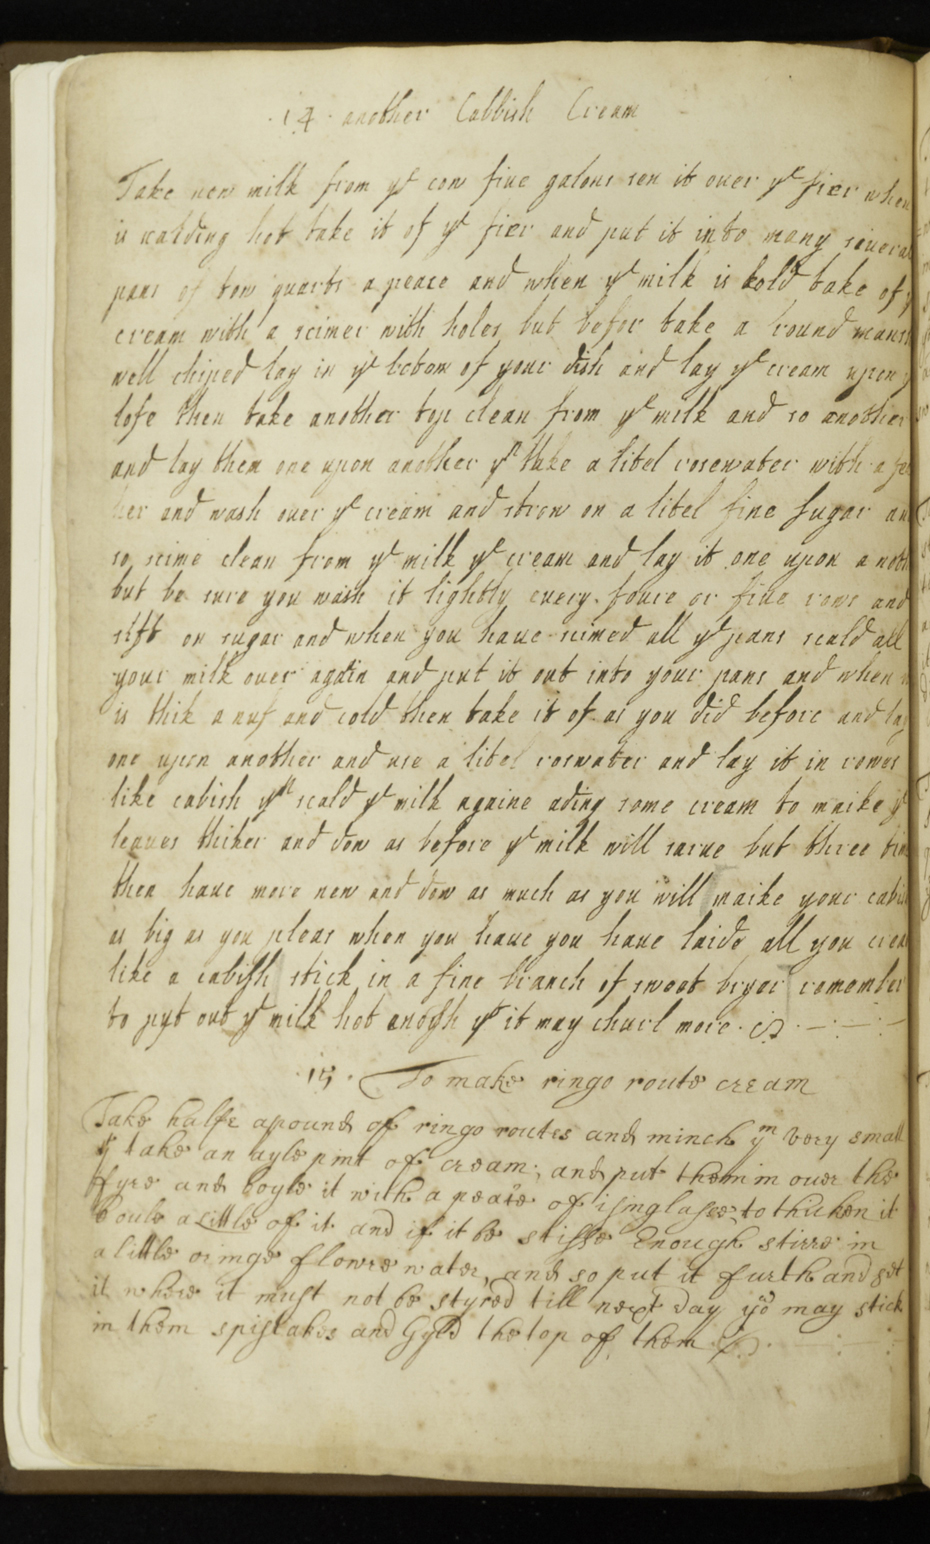 14 another Cabbish Cream
Take new milk from ye cow fiue galons sen it ouer ye fier when
is scalding hot take it of ye fier and put it into many seueral
pans of tow quarts a peace and when ye milk is kold take of
cream with a scimer with holes but befor take a round
well chiped lay in ye botom of your dish and lay ye cream upon
lofe then take another top clean from ye milk and so another
and lay then one upon another yn take a litel rosewater with a
her and wash ouer ye cream and strow on a litel fine sugar
so scime clean from ye milk ye cream and lay it one upon a
but be sure you wash it lightly euery foure or fiue rows and
sift on sugar and when you haue scimed all ye pans scald all
your milk ouer again and put it out into your pans and when
is thik a nuf and cold then take it of as you did before and lay
one upon another and use a litel roswater and lay it in rowes
like cabish yn scald ye milk againe ading some cream to maike ye
leaues thiker and dow as before ye milk will sarue but three
then haue more new and dow as much as you will maike your
as big as you pleas when you haue you haue laide all you
like a cabish stick in a fine branch of sweet bryer remember
to put out ye milk hot enough yt it may churl more
15 To make ringo route cream
Take halfe a pound of ringo routes and minch ym very small
yn take an ayle pint of cream, and put them in ouer the
fyre and boyle it with a peace of isinglasse, to thicken it
coule a little of it and if it be stiffe Enough stirre in
a little oringe flowre water, and so put it furth and set
it where it must not be styred till next day you may stick
in them spistakes and Gyld the top of them